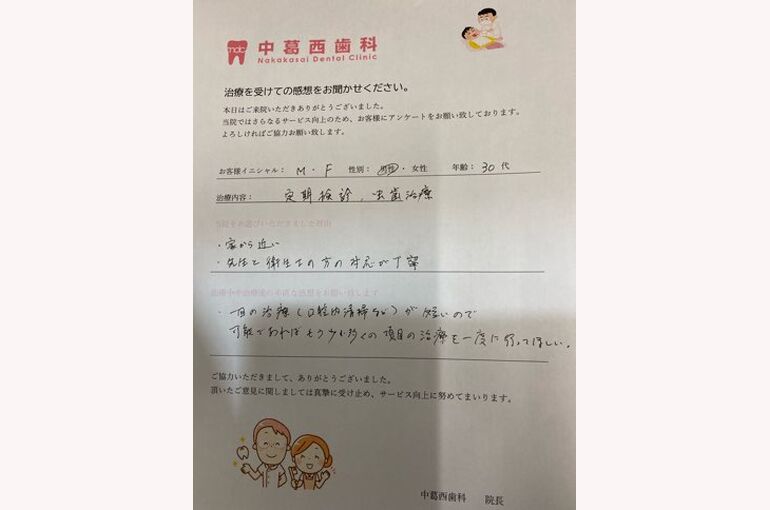 mdc 中葛西歯科
Nakakasai Dental Clinic
治療を受けての感想をお聞かせください。
本日はご来院いただきありがとうございました。
当院ではさらなるサービス向上のため、お客様にアンケートをお願いしております。
よろしければご協力お願い致します。
お客様イニシャル： M・F 性別：男性・女性 年齢：30代
治療内容： 定期検診、虫歯治療
当院をお選びいただきました理由
・家から近い
・先生と衛生士の方の対応が丁寧
治療中や治療後の率直な感想をお願い致します
・一日の治療(口腔内清掃など)が短いので
可能であればもう少し多くの項目の治療を一度に行ってほしい。
ご協力いただきまして、ありがとうございました。
頂いたご意見に関しましては真摯に受け止め、サービス向上に努めてまいります。
中葛西歯科 院長